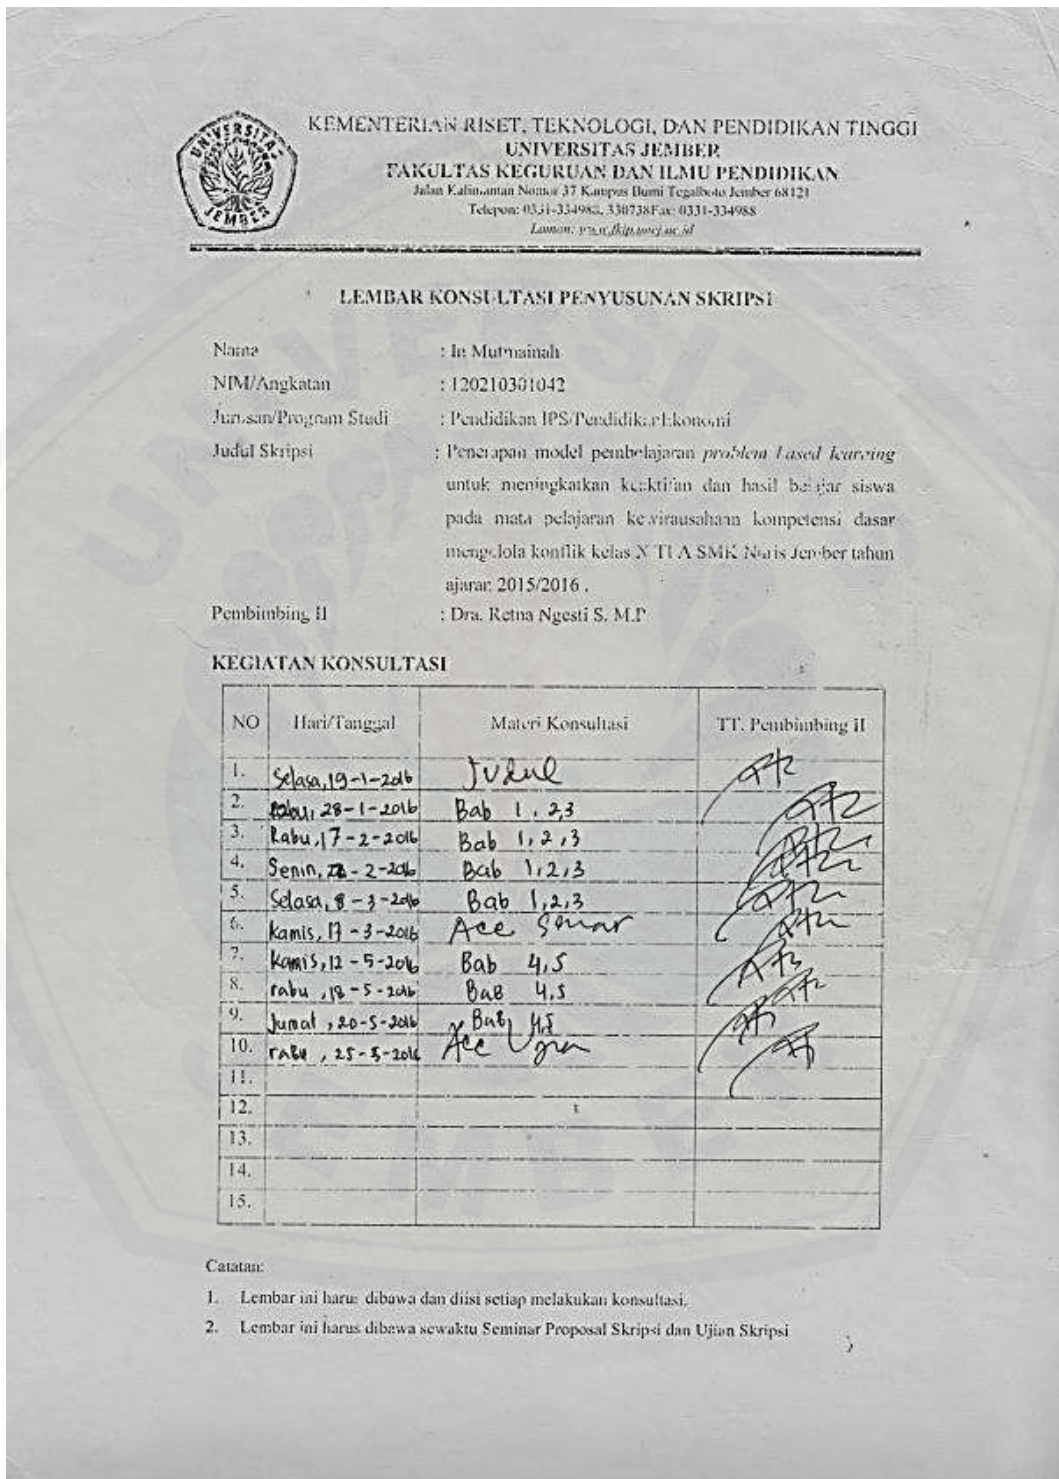 UNIVERSITAS
JEMBER
KEMENTERIAN RISET, TEKNOLOGI, DAN PENDIDIKAN TINGGI
UNIVERSITAS JEMBER
FAKULTAS KEGURUAN DAN ILMU PENDIDIKAN
Jalan Kalimantan Nomor 37 Kampus Bumi Tegalboto Jember 68121
Telepon: 0331-334988, 330738 Fax: 0331-334988
Laman: www.fkip.unej.ac.id
LEMBAR KONSULTASI PENYUSUNAN SKRIPSI
Nama : Mutmainah
NIM/Angkatan : 120210301042
Jurusan/Program Studi : Pendidikan IPS/Pendidikan Ekonomi
Judul Skripsi : Penerapan model pembelajaran problem based learning
untuk meningkatkan keaktifan dan hasil belajar siswa
pada mata pelajaran kewirausahaan kompetensi dasar
mengelola konflik kelas X TI A SMK Nuris Jember tahun
ajaran 2015/2016 .
Pembimbing II : Dra. Retna Ngesti S, M.P
KEGIATAN KONSULTASI
NO Hari/Tanggal Materi Konsultasi TT. Pembimbing II
1. Selasa, 19-1-2016 Judul
2. 28-1-2016 Bab 1,2,3
3. Rabu, 17-2-2016 Bab 1,2,3
4. Senin, -2-2016 Bab 1,2,3
5. Selasa, 8-3-2016 Bab 1,2,3
6. Kamis, 17-3-2016 Acc
7. Kamis, 12-5-2016 Bab 4,5
8. rabu, 18-5-2016 Bab 4,5
9. Jumat, 20-5-2016 Bab 4,5
10. rabu, 25-5-2016 Acc
11.
12.
13.
14.
15.
Catatan:
1. Lembar ini harus dibawa dan diisi setiap melakukan konsultasi.
2. Lembar ini harus dibawa sewaktu Seminar Proposal Skripsi dan Ujian Skripsi